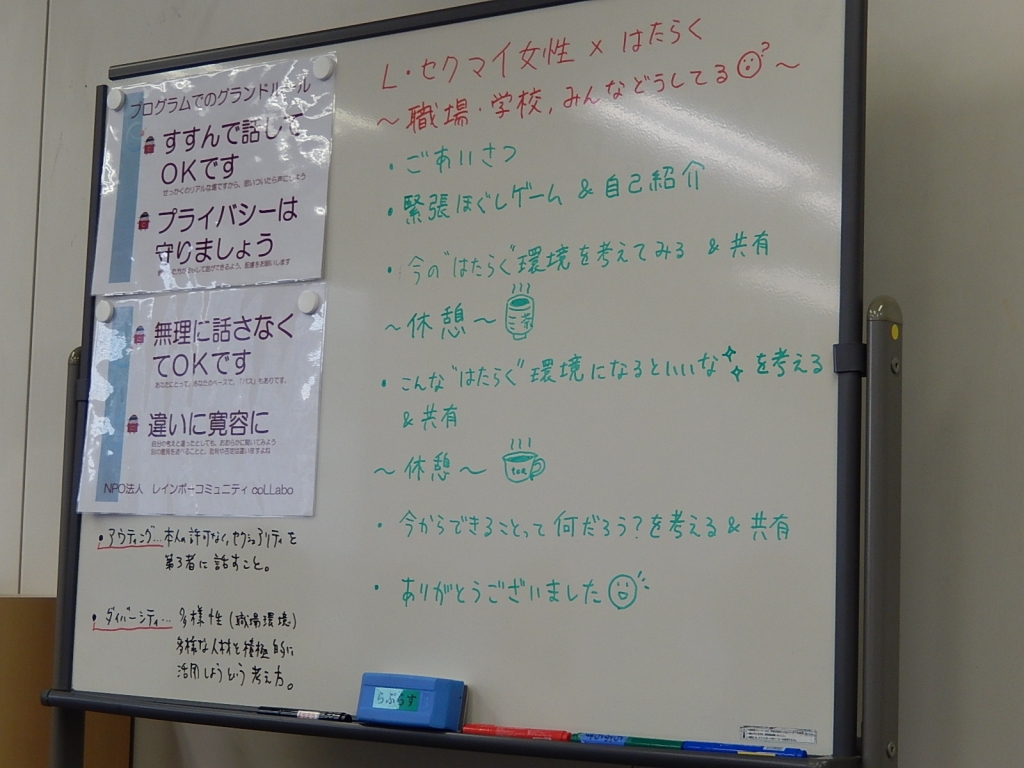 プログラムでのグランドルール
すすんで話して
OKです
せっかくのリアルな場ですから、思いついたら声にしよう
プライバシーは
守りましょう
無理に話さなく
てOKです
あなたにとって、あなたのペースで。「パス」もありです。
違いに寛容に
自分の考えと違ったとしても、おおらかに聞いてみよう
NPO法人 レインボーコミュニティ coLLabo
・アウティング…本人の許可なく、セクシュアリティを
第3者に話すこと。
・ダイバーシティ…多様性(職場環境)
多様な人材を積極的に
活用しようという考え方。
L・セクマイ女性 × はたらく
～職場・学校,みんなどうしてる?～
・ごあいさつ
・緊張ほぐしゲーム & 自己紹介
・今の"はたらく"環境を考えてみる & 共有
～休憩～
茶
・こんな"はたらく"環境になるといいな を考える
& 共有
～休憩～
tea
・今からできることって何だろう?を考える & 共有
・ありがとうございました
らぷらす